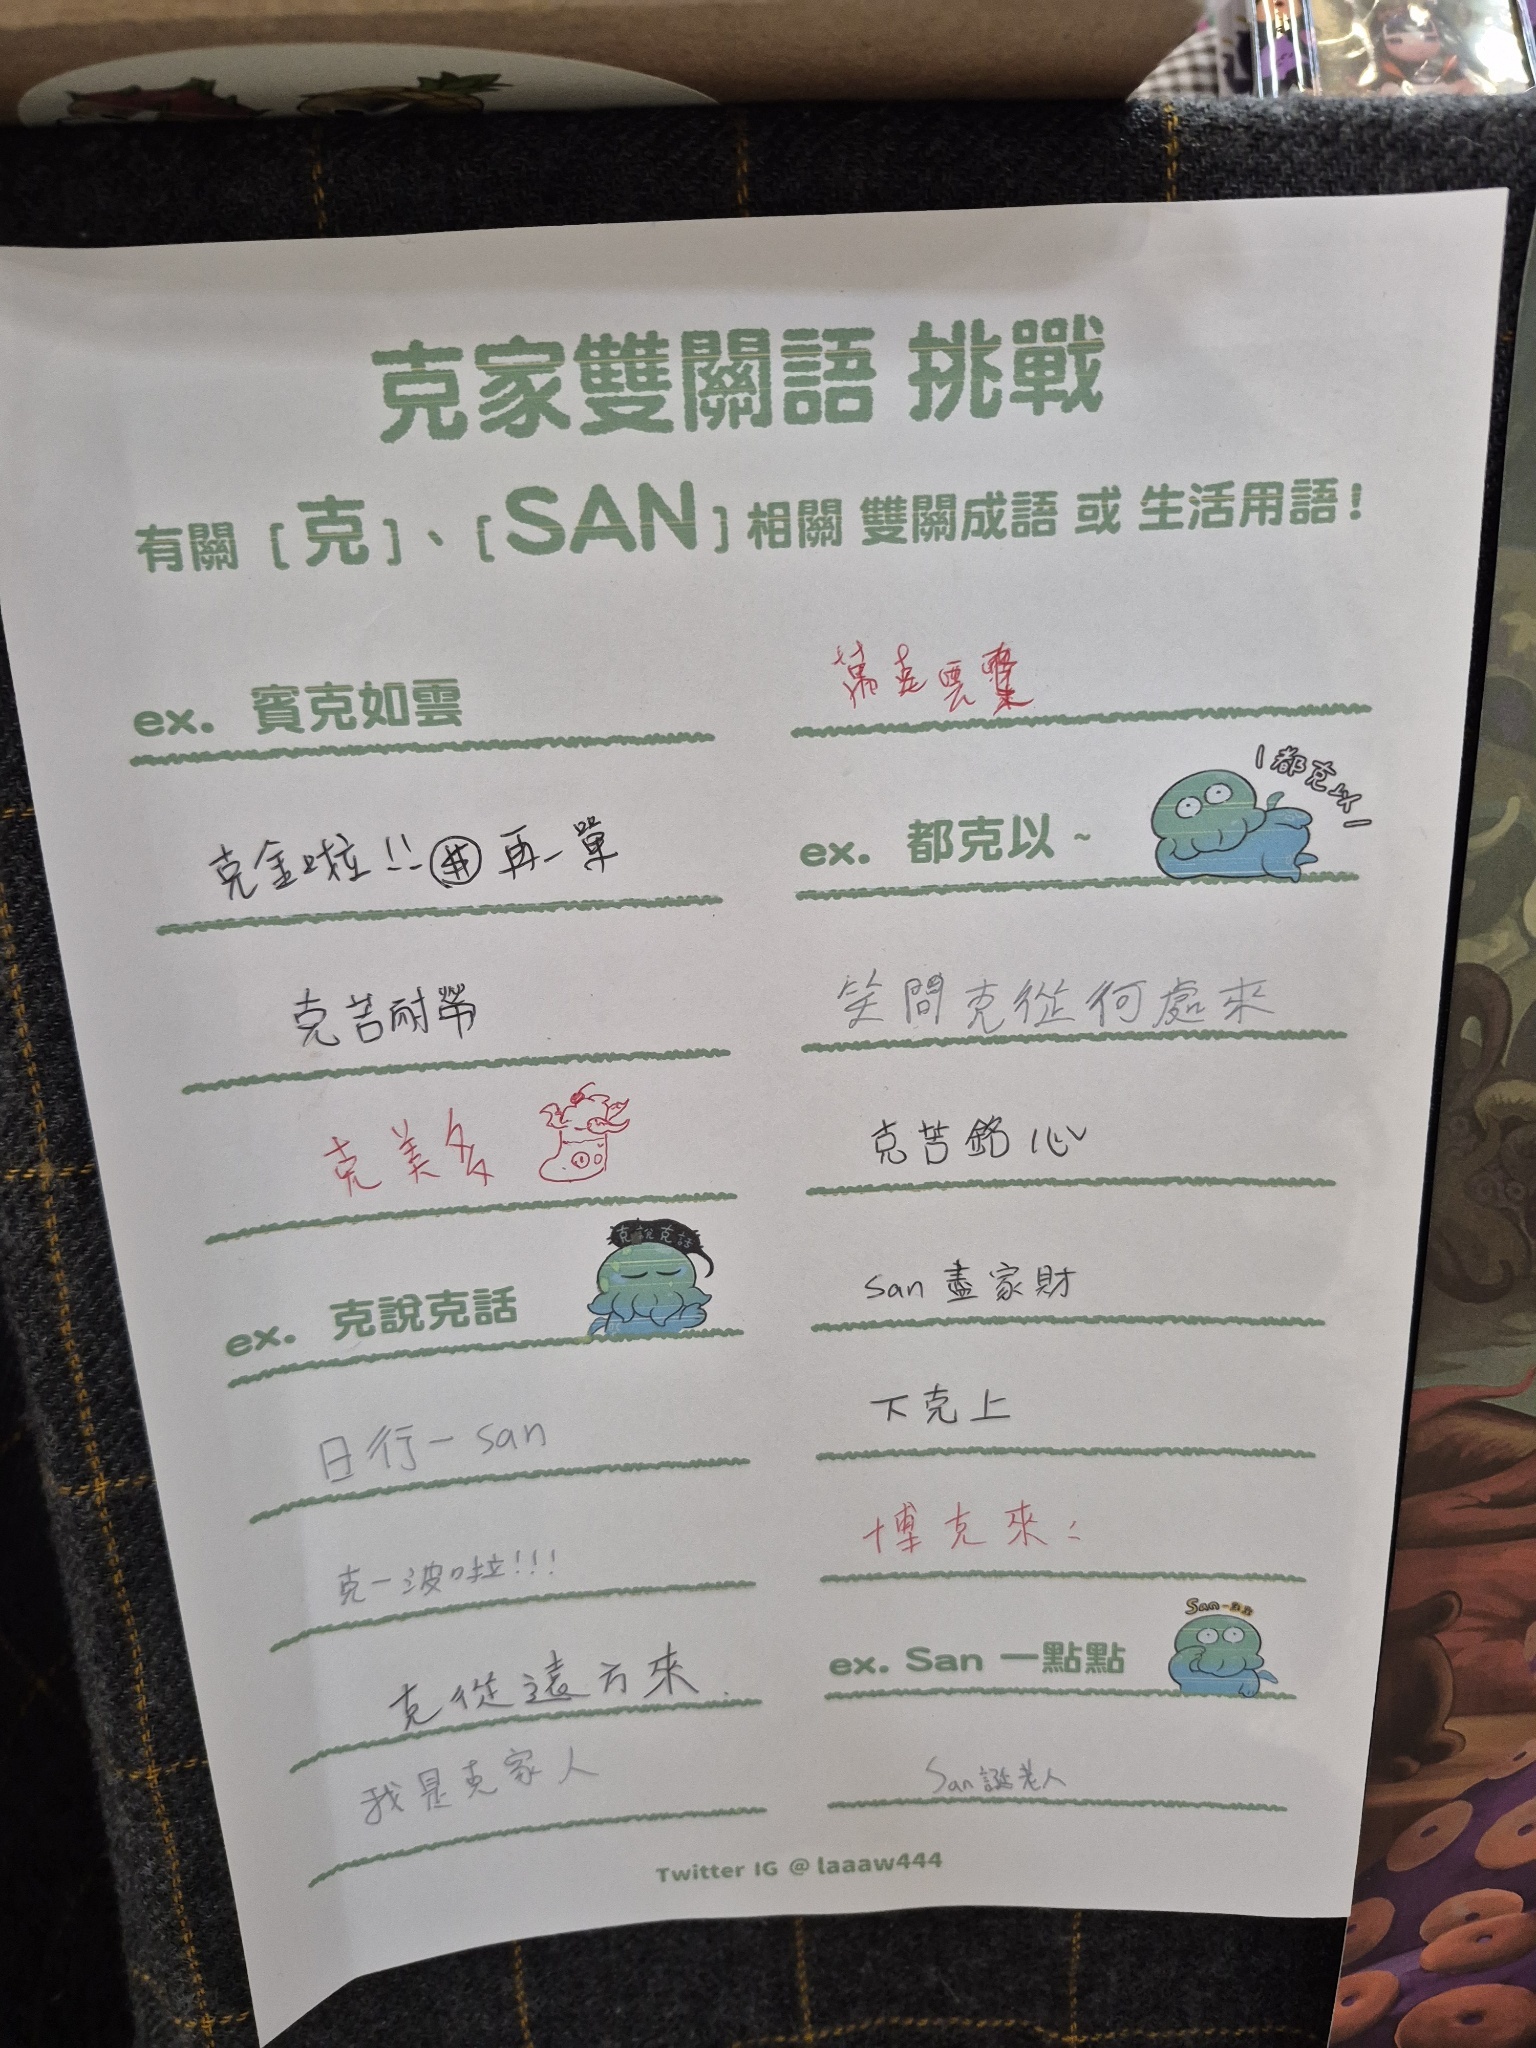 克家雙關語 挑戰
有關 [克]、[SAN] 相關 雙關成語 或 生活用語!
ex. 賓克如雲
克金啦!! 井 再一單
克苦耐勞
克美多
克說克話
ex. 克說克話
日行一san
克一波啦!!!
克從遠方來.
我是克家人
萬克雲集
都克以
ex. 都克以 ~
笑問克從何處來
克苦銘心
san盡家財
下克上
博克來:
San一點點
ex. San 一點點
San誕老人
Twitter IG @ laaaw444